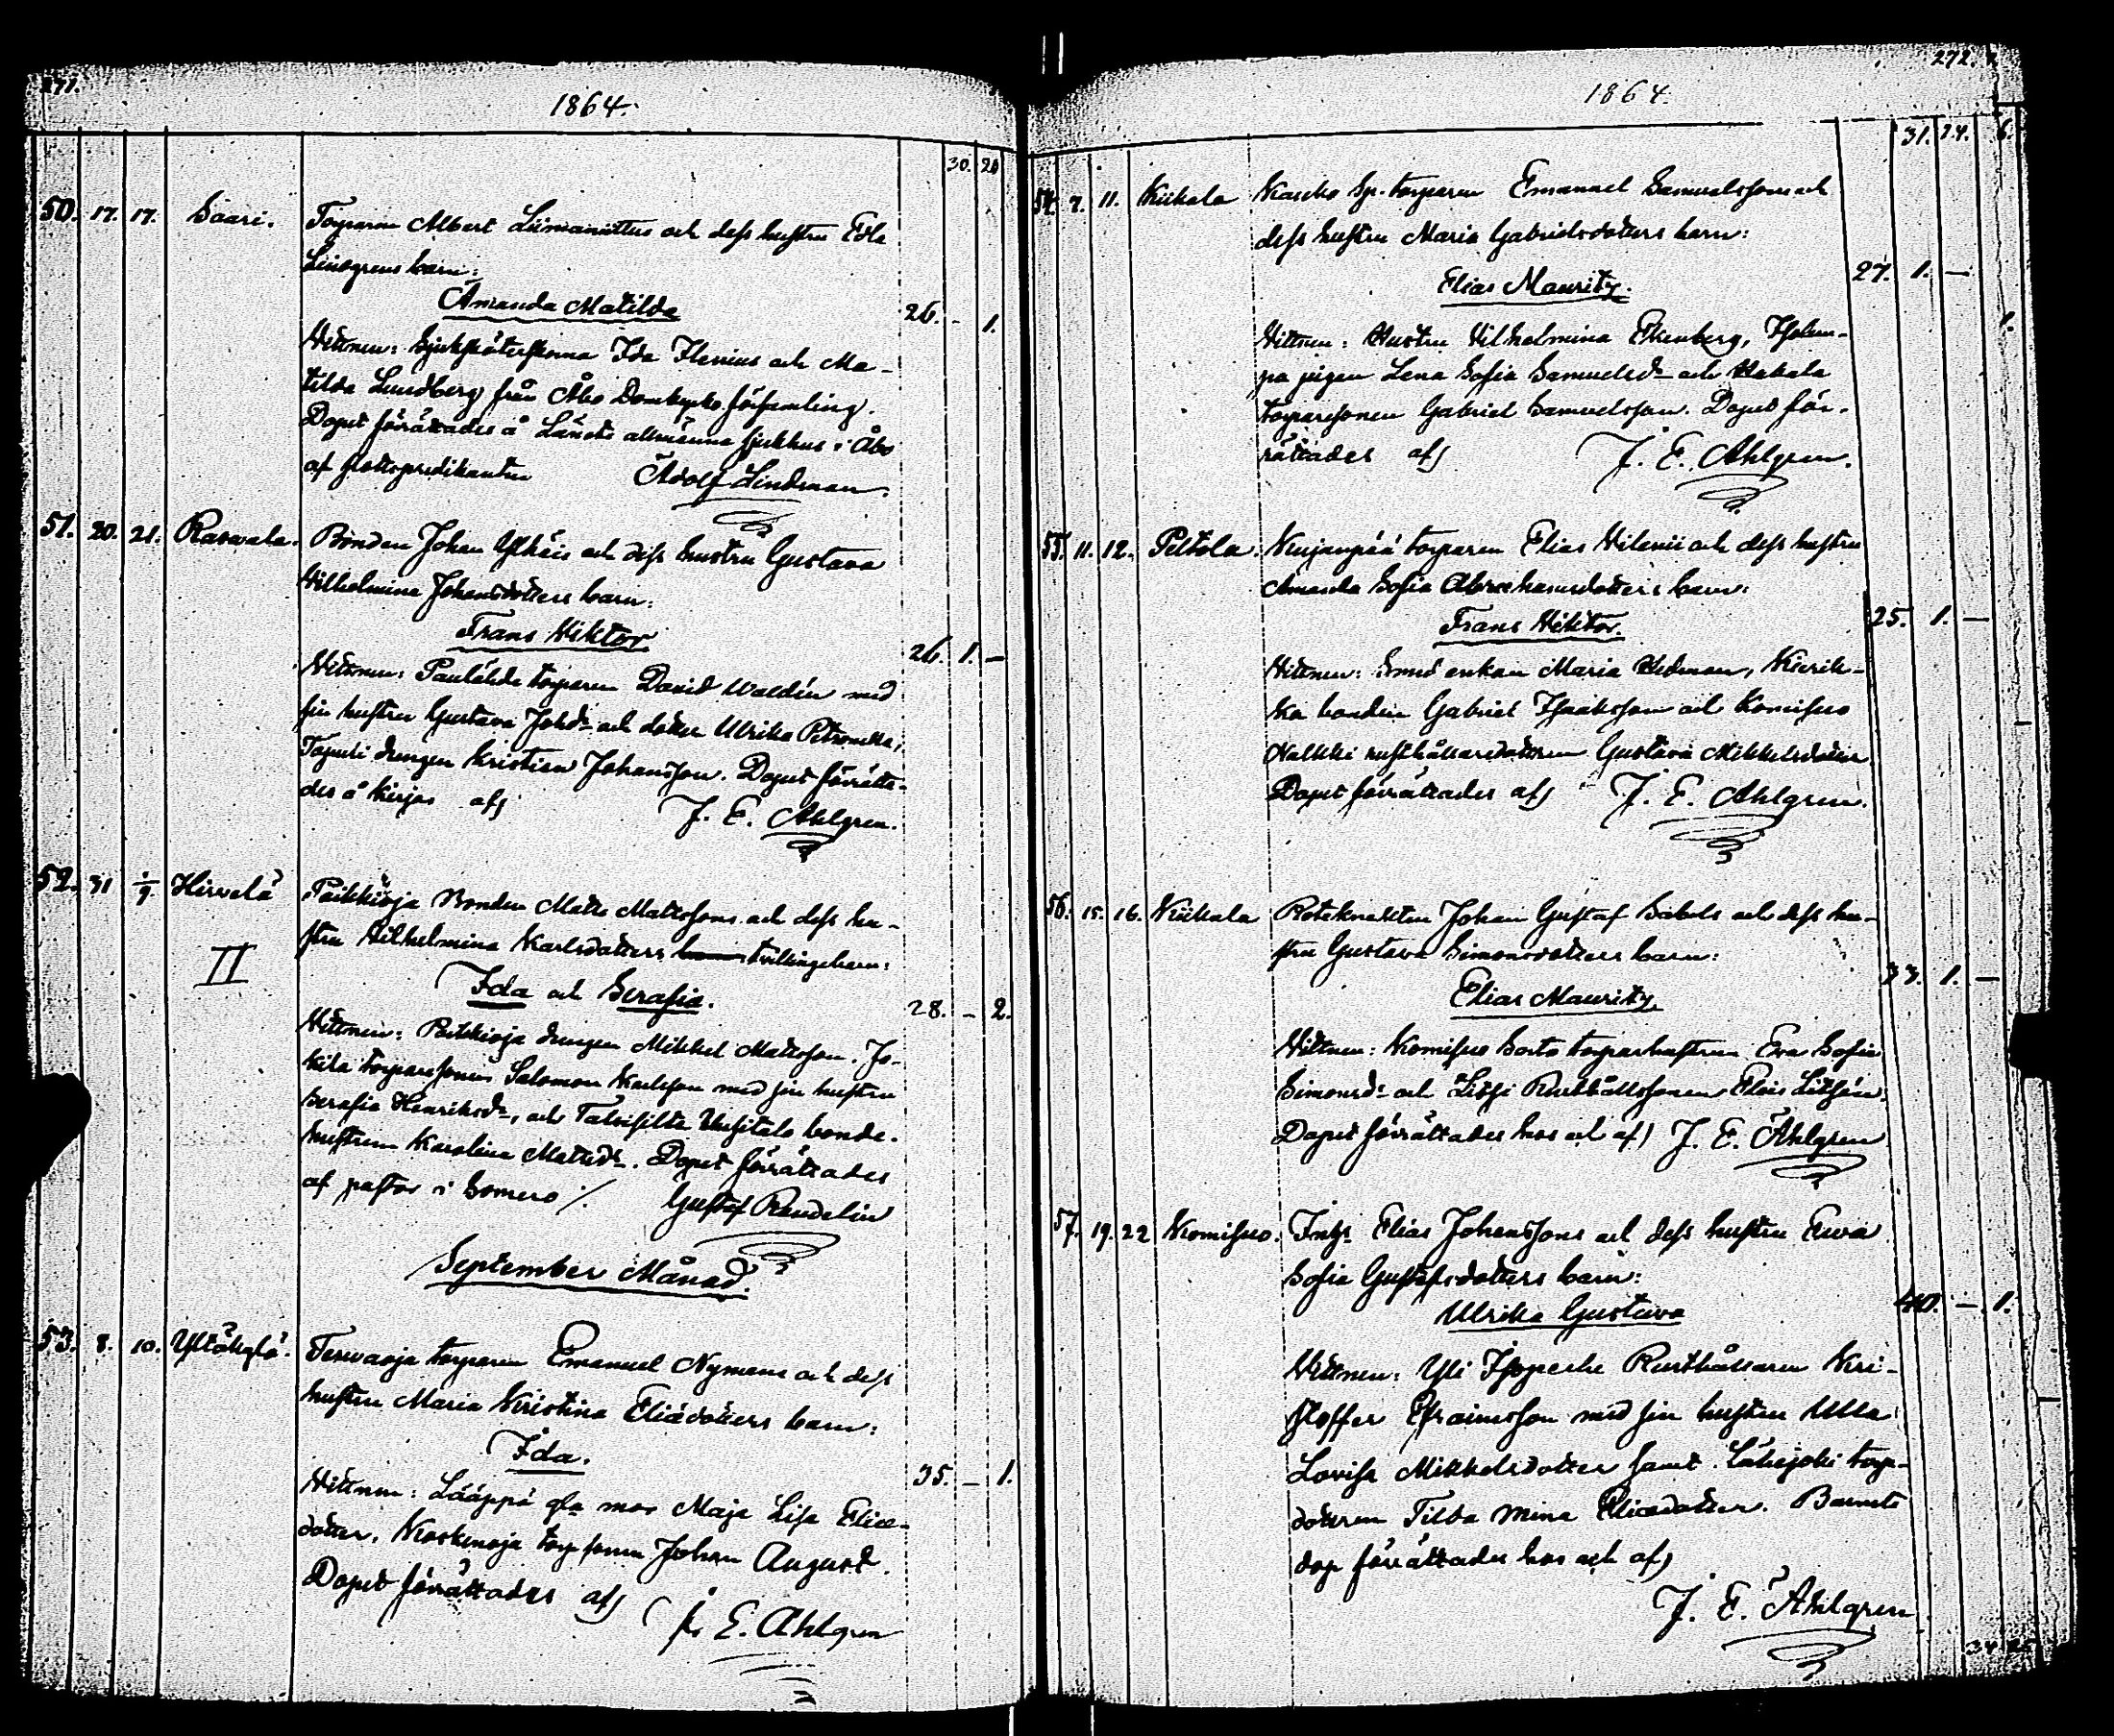 271.
1864.
30. 20
50. 17. 17. Saari. Torparen Albert Liimanittus och dess hustru Edla
Lindgrens barn:
Amanda Matilda 26. - 1.
Vittnen: Sjuksköterskorna Ida Flenius och Ma-
tilda Lundberg från Åbo Domkyrko församling.
Dopet förrättades å Länets allmänna sjukhus i Åbo
af slottspredikanten Adolf Lindman.
51. 20. 21. Raswala. Bonden Johan Ylhäis och dess hustru Gustava
Vilhelmina Johansdotters barn:
Frans Viktor 26. 1. -
Vittnen: torparen David Waldén med
sin hustru Gustava Johdr och dotter Ulrika Petronella,
drengen Kristian Johansson. Dopet förrätta-
des å af J. E. Ahlgren.
52. 31 1/9. Hirvelä Paikkioja Bonden Matts Mattssons och dess hu-
stru Vilhelmina Karlsdotters barn tvillingebarn:
II
Ida och Serafia. 28. - 2.
Vittnen: Paikkioja drengen Mikkel Mattsson. Jo-
kila torparesonen Salomon Karlsson med sin hustru
Serafia Henriksdr, och Talvisilta Uusitalo bonde-
hustrun Karolina Mattsdr. Dopet förrättades
af pastor i Somero ./. Gustaf Randelin
September Månad.
53. 8. 10. Yltäkylä. Tervaoja torparen Emanuel Nymans och dess
hustru Maria Kristina Eliædotters barn:
Ida. 35. - 1.
Vittnen: Lääppä gla mor Maja Lisa Eliæ-
dotter, Koskenoja torpsonen Johan August.
Dopet förrättades af J. E. Ahlgren
272.
1864.
31. 24. 6.
54. 7. 11. Kiikala Kaucko Sp. torparen Emanuel Samuelsson och
dess hustru Maria Gabrielsdotters barn:
Elias Mauritz. 27. 1. -
1.
Vittnen: Hustru Vilhelmina Ekenberg,
pa pigan Lena Sofia Samuelsdr och Hakala
torparesonen Gabriel Samuelsson. Dopet för-
rättades af J. E. Ahlgren.
55. 11. 12. Peltola. Kujanpää torparen Elias Vilenii och dess hustru
Amanda Sofia Abrahamsdotters barn:
Frans Viktor. 25. 1. -
Vittnen: Smed enkan Maria Hedman, Kierik-
ka bonden Gabriel Isaaksson och Komisuo
Nalkki rusthållaredottren Gustava Mikkelsdotter
Dopet förrättades af J. E. Ahlgren.
56. 15. 16. Kiikala Roteknekten Johan Gustaf Sabels och dess hu-
stru Gustava Simonsdotters barn:
Elias Mauritz. 33. 1. -
Vittnen: Komisuo torparhustrun Eva Sofia
Simonsdr och Rusthållssonen Elias
Dopet förrättades hos och af J. E. Ahlgren
57. 19. 22 Komisuo. Inhs Elias Johanssons och dess hustru Eva
Sofia Gustafsdotters barn:
Ulrika Gustava 40. - 1.
Vittnen: Yli Isopeska Rusthållaren Kri-
stoffer Efraimsson med sin hustru Ulla
Lovisa Mikkelsdotter samt Lähejoki torp-
dottren Tilda Mina Eliædotter. Barnets
dop förrättades hos och af
J. E. Ahlgren
34. 25